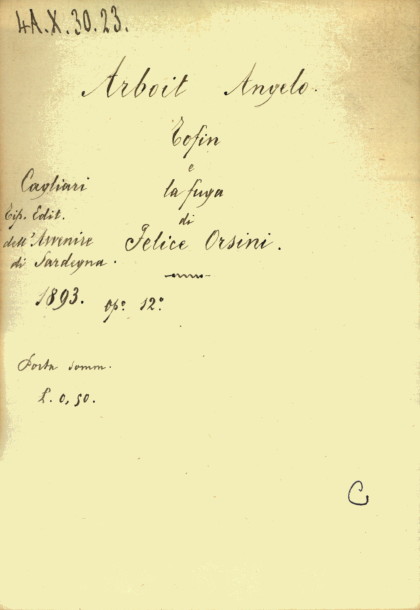 4A.X.30.23.
Arboit Angelo.
Tofin
e
la fuga
di
Felice Orsini.
Cagliari
Tip. Edit.
dell'Avvenire
di Sardegna.
1893. op.º 12.º
Porta somm.
L. 0,50.
C